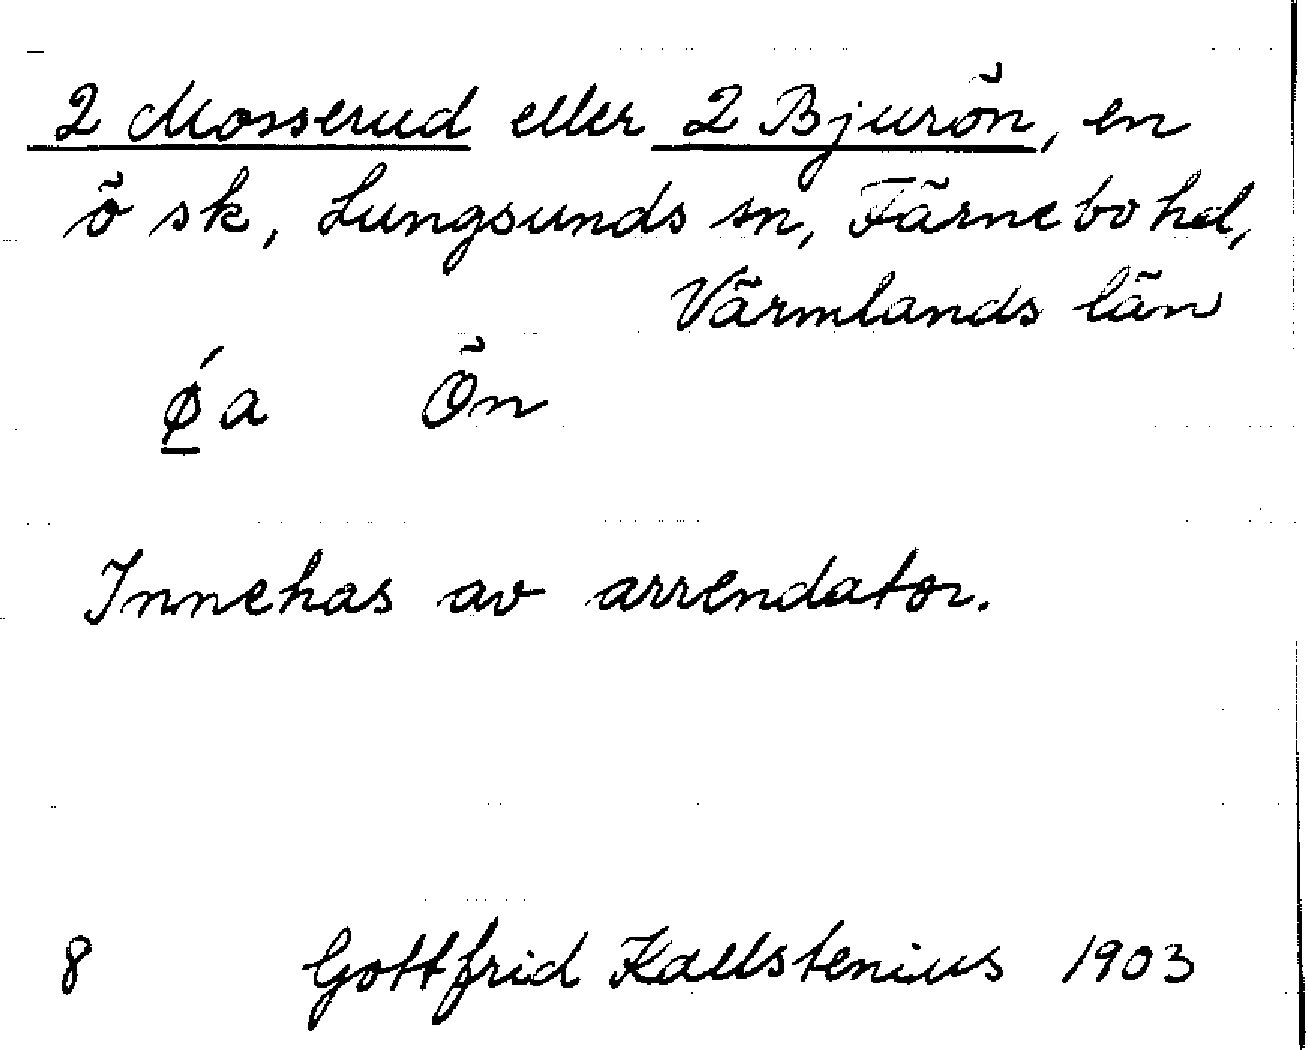 2 Mosserud eller 2 Bjurön, en
ö sk, Lungsunds sn, Färnebo hd,
Värmlands län
ǿ̱a Ön
Innehas av arrendator.
8 Gottfrid Kallstenius 1903